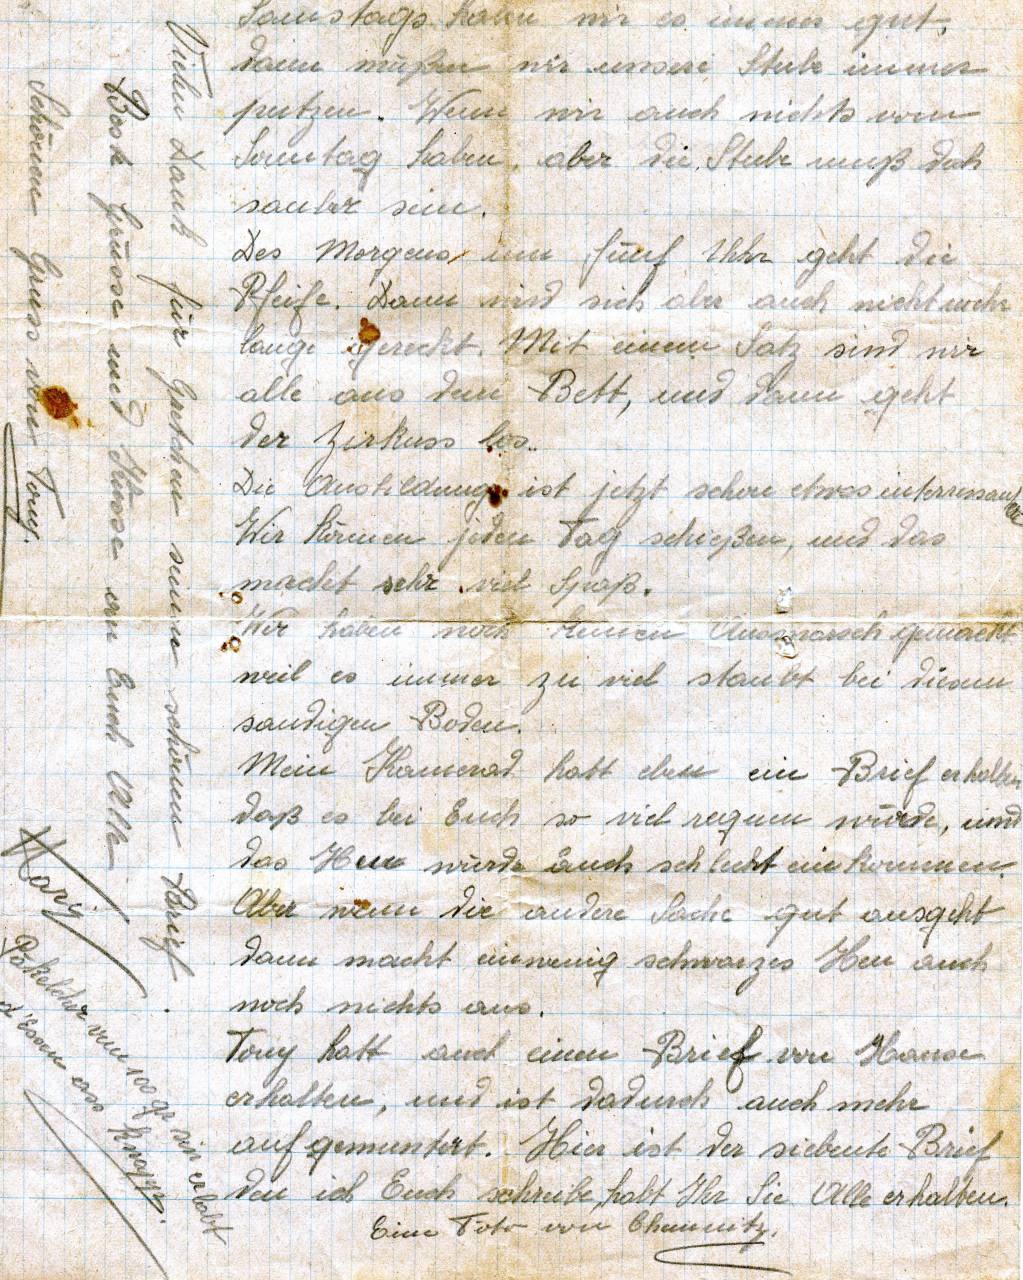 Samstags haben wir es immer gut,
dann müßen wir unsere Stube immer
putzen. Wenn wir auch nichts vom
Sonntag haben, aber die Stube muß doch
sauber sein.
Des Morgens um fünf Uhr geht die
Pfeife. Dann wird sich aber auch nicht mehr
lange gereckt. Mit einem Satz sind wir
alle aus dem Bett, und dann geht
der Zirkuss los.
Die Ausbildung ist jetzt schon etwas interressant
Wir können jeden Tag schießen, und das
macht sehr viel Spaß.
Wir haben noch keinen Ausmarsch gemacht
weil es immer zu viel staubt bei diesem
sandigen Boden.
Mein Kamerad hatt eben ein Brief erhalten
daß es bei Euch so viel regnen würde, und
das Heu würde auch schlecht einkommen.
Aber wenn die andere Sache gut ausgeht
dann macht einwenig schwarzes Heu auch
noch nichts aus.
Tony hatt auch einen Brief von Hause
erhalten, und ist dadurch auch mehr
aufgemuntert. Hier ist der siebente Brief
den ich Euch schreibe, habt Ihr Sie Alle erhalten.
Eine Foto von Chemnitz.
Vielen Dank für Gretchen seinen schönen Brief.
Beste Grüsse und Küsse an Euch Alle
Schönen Gruss von Tony.
Päkelcher vun 100 gr sin erlabt
d'Essen ass knapp.